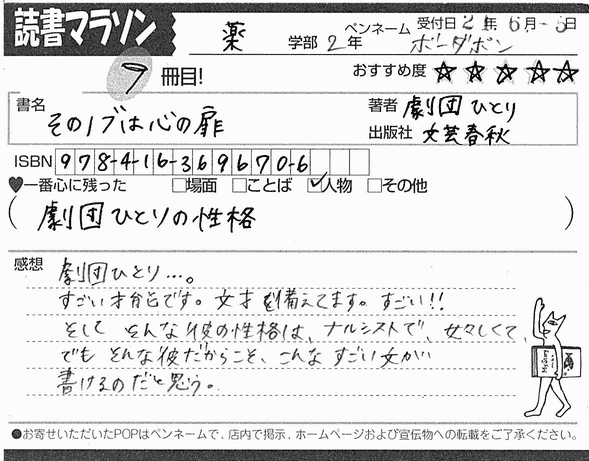 読書マラソン
薬 学部 2年 ペンネーム ボーダポン 受付日 2年 6月-5日
9 冊目! おすすめ度 ☆☆☆☆☆
書名 そのノブは心の扉
著者 劇団ひとり
出版社 文芸春秋
ISBN 978-4-16-369670-6
♥一番心に残った □場面 □ことば ☑人物 □その他
(劇団ひとりの性格)
感想 劇団ひとり…。
すごい才能です。文才を備えてます。すごい!!
そして そんな彼の性格は、ナルシストで、女々しくて、
でも そんな彼だからこそ、こんな すごい文が
書けるのだと思う。
●お寄せいただいたPOPはペンネームで、店内で掲示、ホームページおよび宣伝物への転載をご了承ください。